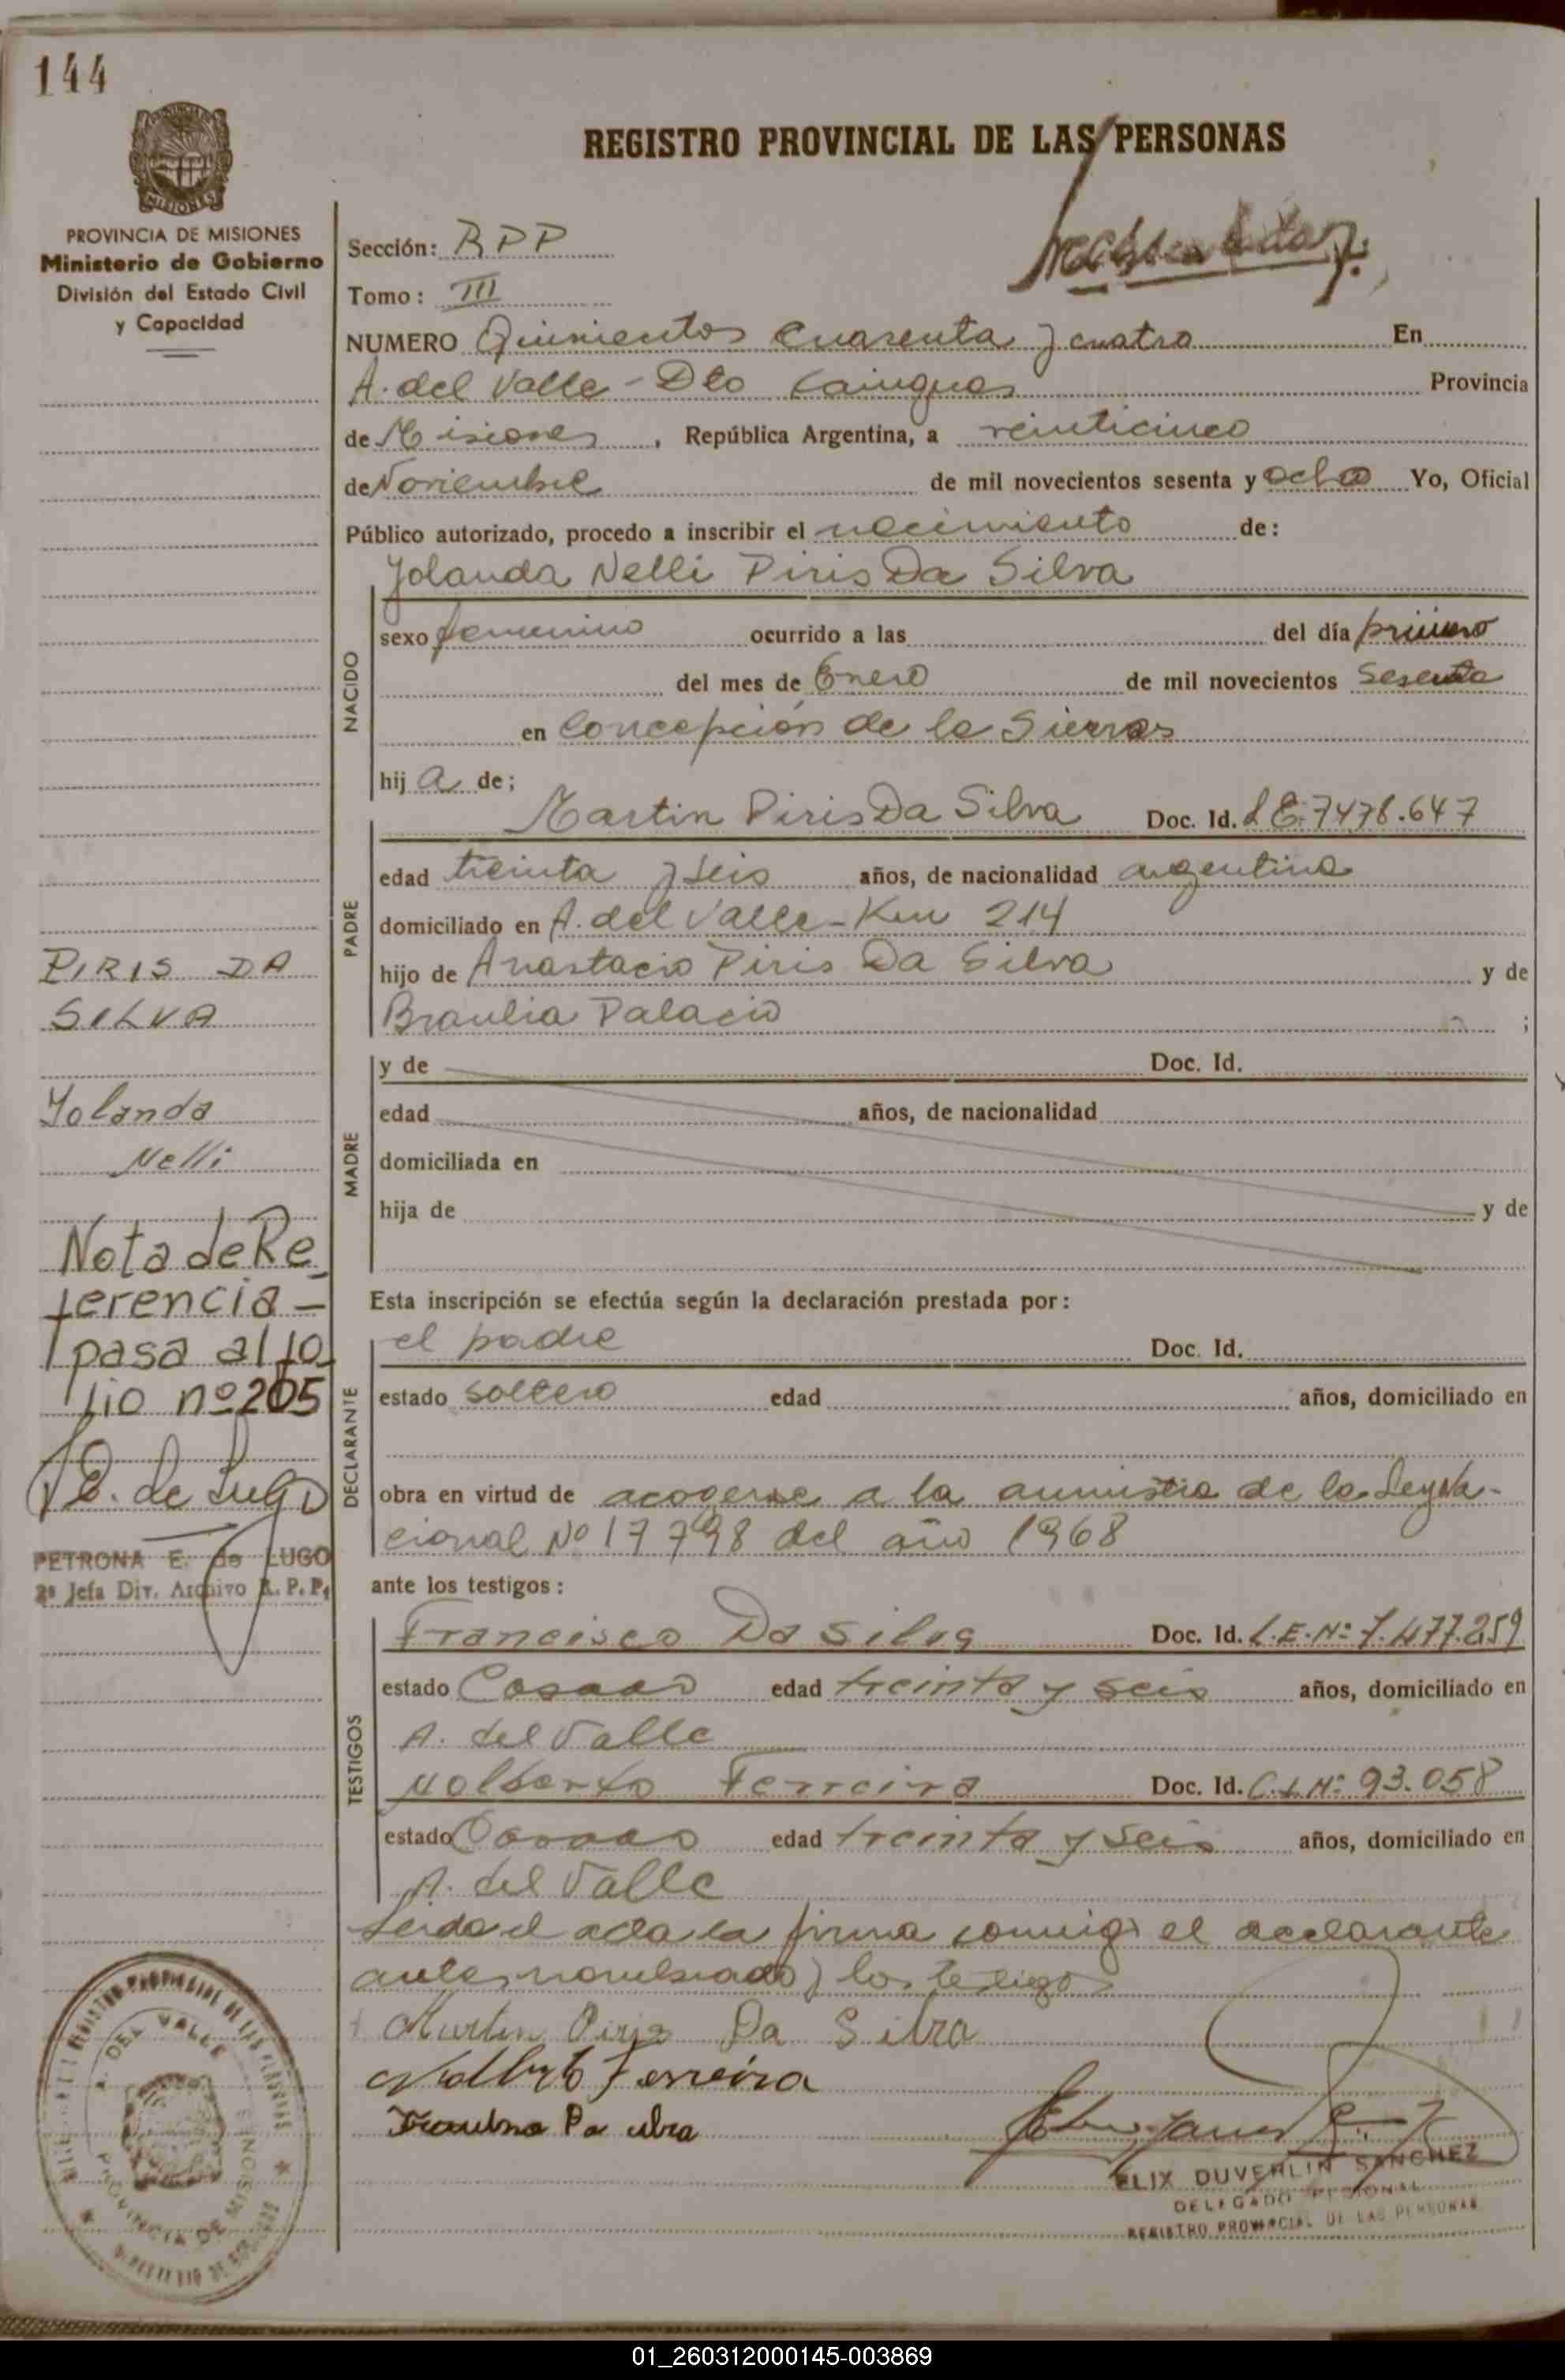 144
REGISTRO PROVINCIAL DE LAS PERSONAS
PROVINCIA DE MISIONES
Ministerio de Gobierno
División del Estado Civil
y Capacidad
Sección: RPP
Tomo: III
NUMERO Quinientos cuarenta y cuatro En
A. del Valle - Dto Cainguas Provincia
de Misiones, República Argentina, a veinticinco
de Noviembre de mil novecientos sesenta y ocho Yo, Oficial
Público autorizado, procedo a inscribir el nacimiento de:
Yolanda Nelli Piris Da Silva
NACIDO
sexo femenino ocurrido a las del día primero
del mes de Enero de mil novecientos sesenta
en Concepción de la Sierras
hij a de;
PADRE
Martin Piris Da Silva Doc. Id. L E. 7478.647
edad treinta y seis años, de nacionalidad argentina
domiciliado en A. del Valle - Km 214
hijo de Anastacio Piris Da Silva y de
Braulia Palacio ;
MADRE
y de Doc. Id.
edad años, de nacionalidad
domiciliada en
hija de y de
Esta inscripción se efectúa según la declaración prestada por:
DECLARANTE
el padre Doc. Id.
estado soltero edad años, domiciliado en
obra en virtud de acogerse a la amnistia de la Ley Na-
cional Nº 17798 del año 1968
ante los testigos:
TESTIGOS
Francisco Da Silva Doc. Id. L.E.Nº 7.477.259
estado Casado edad treinta y seis años, domiciliado en
A. del Valle
Nolberto Ferreira Doc. Id. C.I.Nº 93.058
estado Casado edad treinta y seis años, domiciliado en
A. del Valle
Leida el acta la firma conmigo el declarante
antes nombrado y los testigos
Martin Piris Da Silva
Nolberto Ferreira
Da Silva
FELIX DUVERLIN SANCHEZ
DELEGADO REGIONAL
REGISTRO PROVINCIAL DE LAS PERSONAS
PIRIS DA
SILVA
Yolanda
Nelli
Nota de Re
ferencia -
pasa al fo
lio nº 205
E. de Lugo
PETRONA E. de LUGO
2ª Jefa Div. Archivo R. P. P.
REGISTRO PROVINCIAL DE LAS PERSONAS
A. DEL VALLE
PROVINCIA DE MISIONES